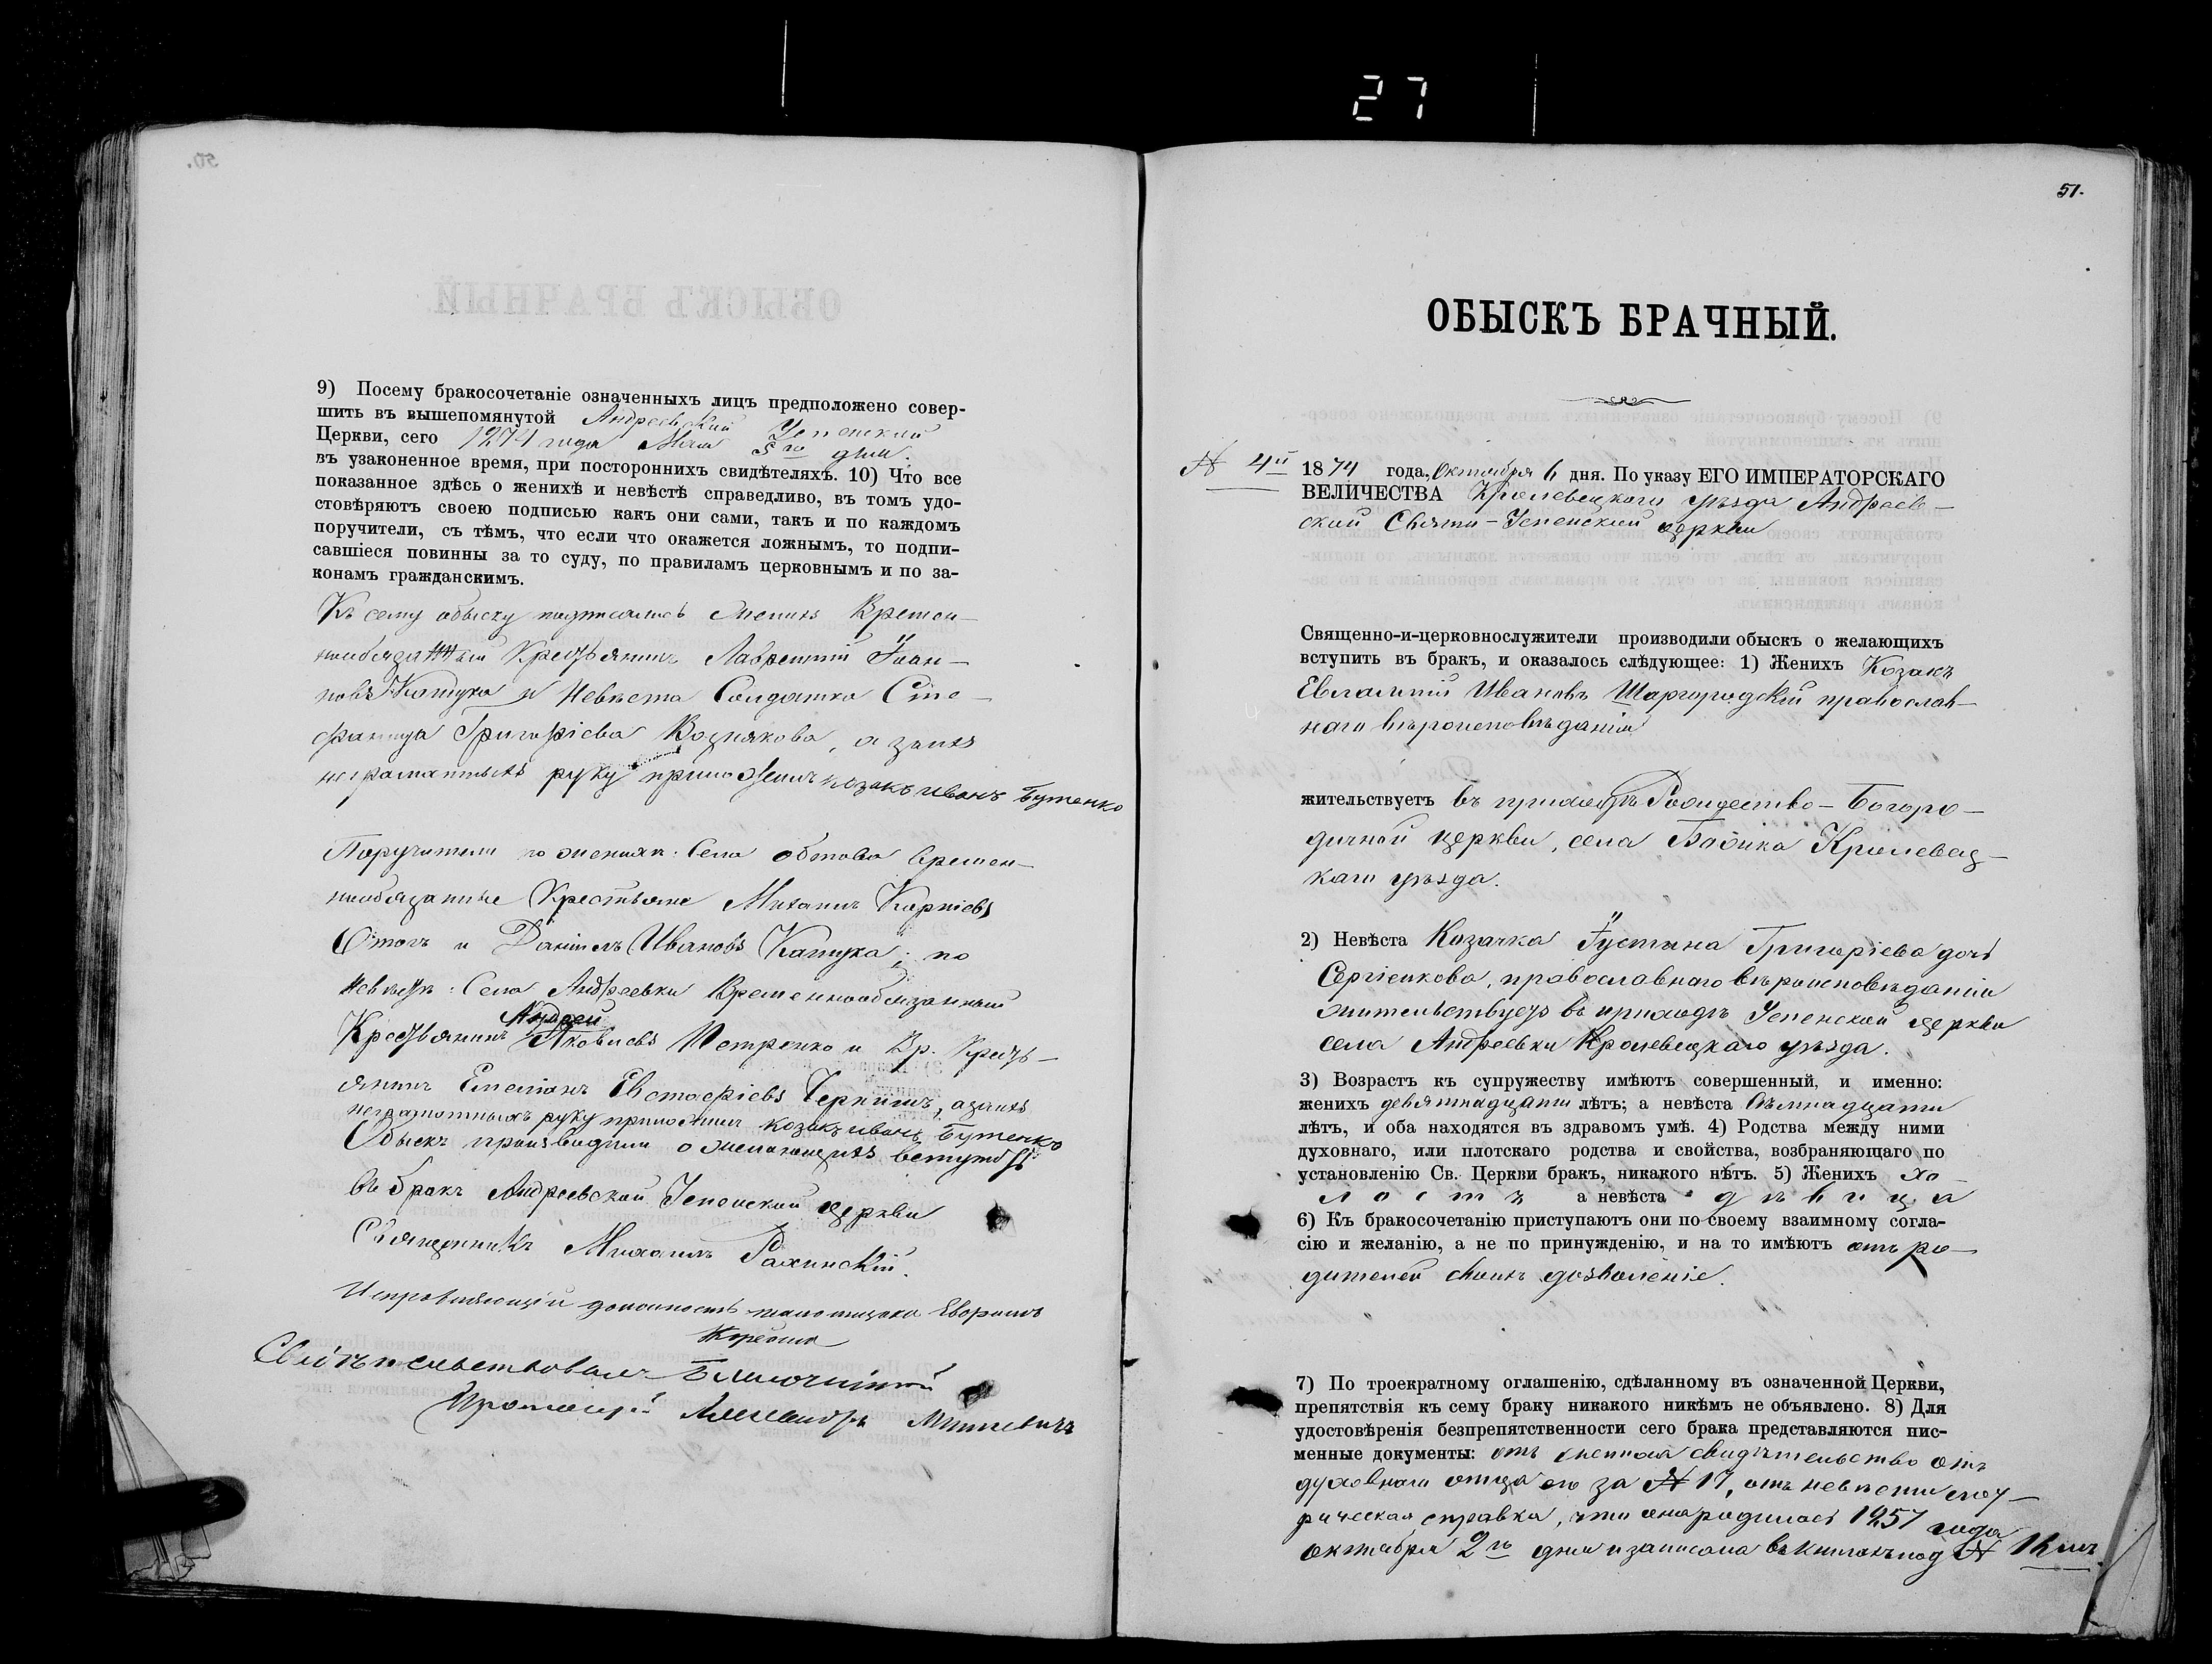 27
50.
9) Посему бракосочетаніе означенныхъ лицъ предположено совер-
шить въ вышепомянутой Андреевской Успенской
Церкви, сего 1874 года Мая 5го дня.
въ узаконенное время, при постороннихъ свидѣтеляхъ. 10) Что все
показанное здѣсь о женихѣ и невѣстѣ справедливо, въ томъ удо-
стовѣряютъ своею подписью какъ они сами, такъ и по каждомъ
поручители, съ тѣмъ, что если что окажется ложнымъ, то подпи-
савшіеся повинны за то суду, по правиламъ церковнымъ и по за-
конамъ гражданскимъ.
Къ сему обыску подписались Женихъ Времен-
нообязанный Крестьянинъ Лаврентій Іоан-
новъ Катука и Невѣста Солдатка Сте-
фанида Григоріева Вознякова, а за нихъ
неграматныхъ руку приложилъ козакъ Иванъ Бутенко
Поручители по женихѣ: Села Обтова Времен-
нообязанные Крестьяне Михаилъ Карпіевъ
и Даніилъ Ивановъ Катука; по
Невѣстѣ: Села Андреевки Временнообязанный
Крестьянинъ Андрей Яковлевъ Петренко и Вр. Кресть-
янинъ Емеліанъ Евстафіевъ Чернишъ, а за нихъ
неграмотныхъ руку приложилъ козакъ Иванъ Бутенко
Обыскъ производили о желающихъ вступить
въ бракъ Андреевской Успенской церкви
Священникъ Михаилъ Рахинскій.
Исправляющій должность псаломщика
Свидѣтельствовалъ Благочинный
Протоіерей Александръ
51.
ОБЫСКЪ БРАЧНЫЙ.
№ 4й
1874 года, Октября 6 дня. По указу ЕГО ИМПЕРАТОРСКАГО
ВЕЛИЧЕСТВА Кролевецкаго уѣзда Андреев-
ской Свято-Успенской церкви
Священно-и-церковнослужители производили обыскъ о желающихъ
вступить въ бракъ, и оказалось слѣдующее: 1) Женихъ Козакъ
Евлампій Ивановъ Шаргородскій православ-
наго вѣроисповѣданія
жительствуетъ въ приходѣ Рождество-Богоро-
дичной церкви, села Бабика Кролевец-
каго уѣзда.
2) Невѣста Козачка Іустина Григоріева дочь
Сергіенкова, православнаго вѣроисповѣданія
жительствуетъ въ приходѣ Успенской церкви
села Андреевки Кролевецкаго уѣзда.
3) Возрастъ къ супружеству имѣютъ совершенный, и именно:
женихъ девятнадцати лѣтъ; а невѣста
лѣтъ, и оба находятся въ здравомъ умѣ. 4) Родства между ними
духовнаго, или плотскаго родства и свойства, возбраняющаго по
установленію Св. Церкви бракъ, никакого нѣтъ. 5) Женихъ хо-
лостъ а невѣста дѣвица
6) Къ бракосочетанію приступаютъ они по своему взаимному согла-
сію и желанію, а не по принужденію, и на то имѣютъ отъ ро-
дителей своихъ дозволеніе.
7) По троекратному оглашенію, сдѣланному въ означенной Церкви,
препятствія къ сему браку никакого никѣмъ не объявлено. 8) Для
удостовѣренія безпрепятственности сего брака представляются пис-
менные документы: отъ жениха свидѣтельство отъ
духовнаго отца его за № 17, отъ невѣсты мет-
рическая справка, что она родилась 1857 года
октября 2го дня и записана въ книгахъ под №